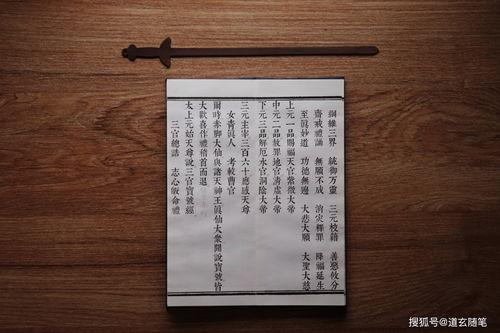 綱維三界　統御万靈　三元校籍　善惡攸分
齋戒禮誦　無願不成　消灾釋罪　降福延生
至眞妙道　功德無邊　大悲大願　大聖大慈
上元一品賜福天官紫微大帝
中元二品赦罪地官清虛大帝
下元三品解厄水官洞陰大帝
三元主宰三百六十應感天尊
女青眞人　考較曹官
爾時赤脚大仙與諸天神王眞仙大衆聞說寶號皆
大歡喜作禮稽首而退
太上元始天尊說三官寶號經
三官總誥　志心皈命禮
搜狐号@道玄随笔